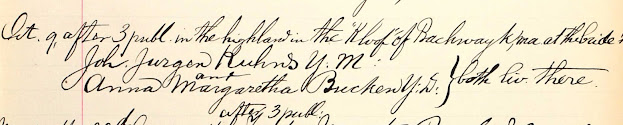 Oct. 9, after 3 publ. in the highland in the "Kloof" of Bachwayk ma. at the bride's
Joh. Jurgen Kuhns Y. M.
and
Anna Margaretha Bucken Y. D. } both liv. there.
after 3 publ.